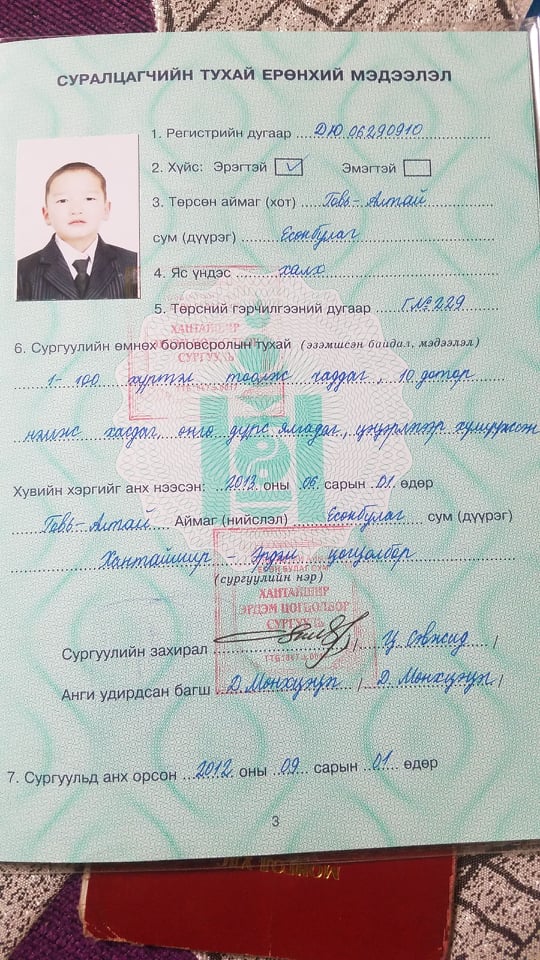 СУРАЛЦАГЧИЙН ТУХАЙ ЕРӨНХИЙ МЭДЭЭЛЭЛ
1. Регистрийн дугаар ДЮ 06290910
2. Хүйс: Эрэгтэй Эмэгтэй
3. Төрсөн аймаг (хот) Говь-Алтай
сум (дүүрэг) Есөнбулаг
4. Яс үндэс халх
5. Төрсний гэрчилгээний дугаар Г№229
6. Сургуулийн өмнөх боловсролын тухай (эзэмшсэн байдал, мэдээлэл)
ХАНТАЙШИР
СУРГУУЛЬ
1-100 хүртэл тоолж чаддаг, 10 дотор
нэмж хасдаг, өнгө дүрс ялгадаг, цэцэрлэгээр хүмүүжсэн
Хувийн хэргийг анх нээсэн: 2013 оны 06 сарын 01 өдөр
Говь-Алтай Аймаг (нийслэл) Есөнбулаг сум (дүүрэг)
Хантайшир - Эрдэм цогцолбор
(сургуулийн нэр)
ХАНТАЙШИР
ЭРДЭМ ЦОГЦОЛБОР
СУРГУУЛЬ
Сургуулийн захирал / Ц. Сэвжид /
Анги удирдсан багш Д. Мөнхцэцэг / Д. Мөнхцэцэг /
7. Сургуульд анх орсон 2012 оны 09 сарын 01 өдөр
3